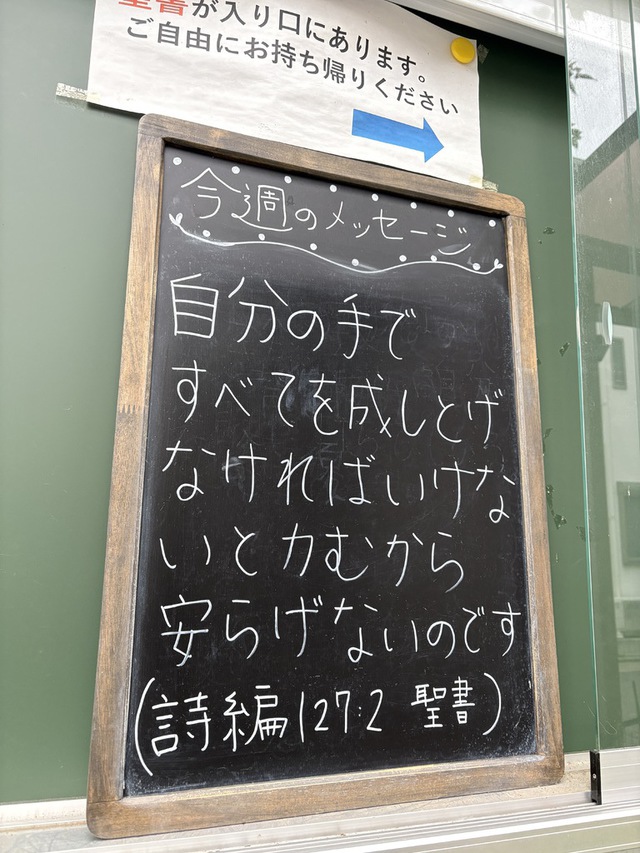 聖書が入り口にあります。
ご自由にお持ち帰りください
今週のメッセージ
自分の手で
すべてを成しとげ
なければいけな
いと力むから
安らげないのです
(詩編127:2 聖書)